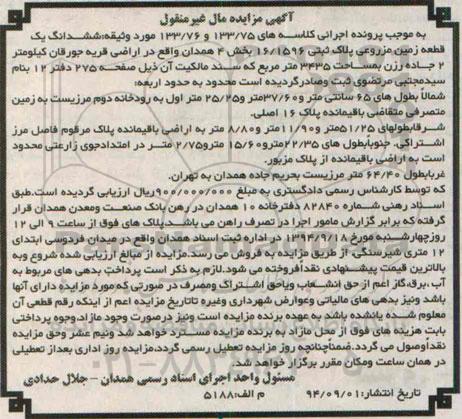 آگهی مزایده مال غیرمنقول
به موجب پرونده اجرائی کلاسه های ۱۳۳/۷۵ و ۱۳۳/۷۶ مورد وثیقه:ششدانگ یک
قطعه زمین مزروعی پلاک ثبتی ۱۶/۱۵۹۶ بخش ۴ همدان واقع در اراضی قریه جورقان کیلومتر
۲ جاده رزن بمساحت ۳۴۳۵ متر مربع که سند مالکیت آن ذیل صفحه ۲۷۵ دفتر ۱۲ بنام
سیدمجتبی مرتضوی ثبت وصادرگردیده است محدود به حدود اربعه:
شمالاً بطول های ۶۵ سانتی متر و۳۷/۶۰متر و۲۵/۲۵ متر اول به رودخانه دوم مرزیست به زمین
متصرفی متقاضی باقیمانده پلاک ۱۶ اصلی.
شرقابطولهای ۵۱/۲۵متر و۱۱/۹۰متر و۸/۸۰ متر به اراضی باقیمانده پلاک مرقوم فاصل مرز
اشتراکی. جنوبابطول های ۲۲/۳۵متر و۱۵/۶۰ مترو۲/۷۵ متر در امتدادجوی زارعتی محدود
است به اراضی باقیمانده از پلاک مزبور.
غربابطول ۶۴/۴۰ متر مرزیست بحریم جاده همدان به تهران.
که توسط کارشناس رسمی دادگستری به مبلغ ۹۰۰/۰۰۰/۰۰۰ریال ارزیابی گردیده است.طبق
اسناد رهنی شماره ۸۲۸۴۰ دفترخانه ۱۰ همدان در رهن بانک صنعت ومعدن همدان قرار
گرفته که برابر گزارش مامور اجرا در تصرف راهن می باشد.پلاک های فوق از ساعت ۹ الی ۱۲
روزچهارشنبه مورخ ۱۳۹۴/۹/۱۸ در اداره ثبت اسناد همدان واقع در میدان فردوسی ابتدای
۱۲ متری شیرسنگی، از طریق مزایده به فروش می رسد.مزایده از مبالغ ارزیابی شده شروع وبه
بالاترین قیمت پیشنهادی نقدآفروخته می شود.لازم به ذکر است پرداخت بدهی های مربوط به
آب،برق،گاز اعم از حق انشعاب ویاحق اشتراک ومصرف در صورتی که مورد مزایده دارای آنها
باشد ونیز بدهی های مالیاتی وعوارض شهرداری وغیره تاتاریخ مزایده اعم از اینکه رقم قطعی آن
معلوم شده یانشده باشد به عهده برنده مزایده است ونیز درصورت وجود مازاد،وجوه پرداختی
بابت هزینه های فوق از محل مازاد به برنده مزایده مسترد خواهد شد ونیم عشر وحق مزایده
نقداًوصول می گردد.ضمنآچنانچه روز مزایده تعطیل رسمی گردد،مزایده روز اداری بعداز تعطیلی
در همان ساعت ومکان مقرر برگزار خواهد شد
مسئول واحد اجرای اسناد رسمی همدان - جلال حدادی
تاریخ انتشار: ۹۴/۰۹/۰۱ م الف:۵۱۸۸